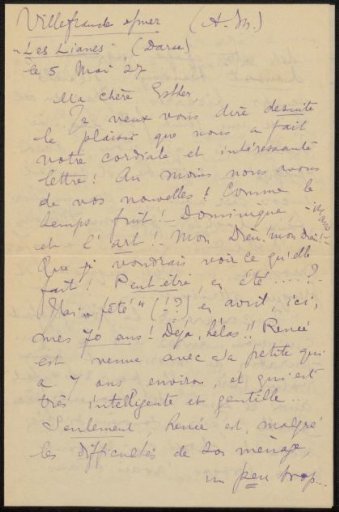 Villefranche s/mer (A. M.)
"Les Lianes" (Darse)
le 5 Mai 27
Ma chère Esther
Je veux vous dire de suite
le plaisir que nous a fait
votre cordiale et intéressante
lettre! Au moins nous avons
de vos nouvelles! Comme le
temps fuit! – Dominique
et l'art!! Mon Dieu! mon Dieu!
Que je voudrais voir ce qu'elle
fait! Peut être, en été ....?
J'ai "fêté" (!?) en avril, ici,
mes 70 ans! Déjà, hélas!! Renée
est venue avec sa petite qui
a 7 ans environ, et qui est
très intelligente et gentille.
Seulement Renée est, malgré
les difficultés de son ménage,
un peu trop